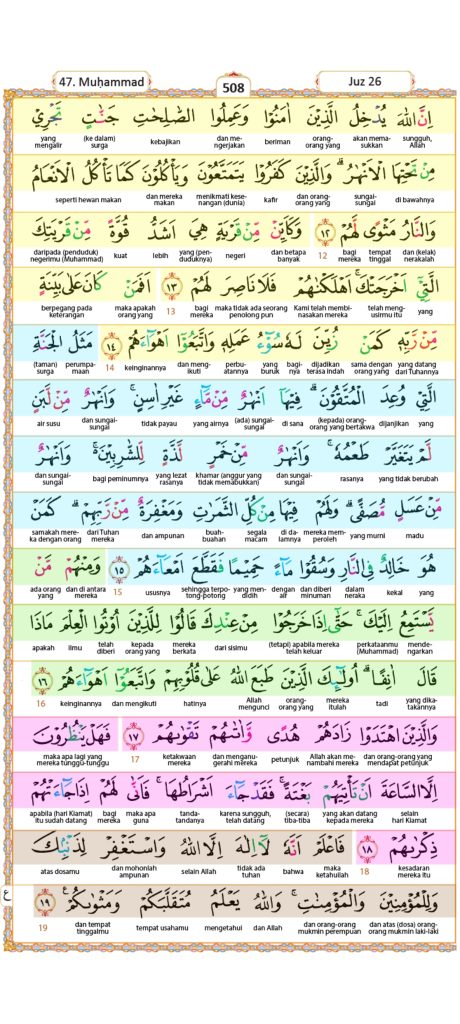 47. Muḥammad
508
Juz 26
اِنَّ اللّٰهَ يُدْخِلُ الَّذِيْنَ اٰمَنُوْا وَعَمِلُوا الصّٰلِحٰتِ جَنّٰتٍ تَجْرِيْ
sungguh, Allah akan mema-sukkan orang-orang yang beriman dan me-ngerjakan kebajikan (ke dalam) surga yang mengalir
مِنْ تَحْتِهَا الْاَنْهٰرُ ۗ وَالَّذِيْنَ كَفَرُوْا يَتَمَتَّعُوْنَ وَيَأْكُلُوْنَ كَمَا تَأْكُلُ الْاَنْعَامُ
di bawahnya sungai-sungai dan orang-orang yang kafir menikmati kese-nangan (dunia) dan mereka makan seperti hewan makan
وَالنَّارُ مَثْوًى لَّهُمْ ١٢ وَكَاَيِّنْ مِّنْ قَرْيَةٍ هِيَ اَشَدُّ قُوَّةً مِّنْ قَرْيَتِكَ
dan (kelak) nerakalah tempat tinggal bagi mereka 12 dan betapa banyak negeri yang (pen-duduknya) lebih kuat daripada (penduduk) negerimu (Muhammad)
الَّتِيْٓ اَخْرَجَتْكَۚ اَهْلَكْنٰهُمْ فَلَا نَاصِرَ لَهُمْ ١٣ اَفَمَنْ كَانَ عَلٰى بَيِّنَةٍ
yang telah meng-usirmu itu Kami telah membi-nasakan mereka maka tidak ada seorang penolong pun bagi mereka 13 maka apakah orang yang berpegang pada keterangan
مِّنْ رَّبِّهٖ كَمَنْ زُيِّنَ لَهٗ سُوْۤءُ عَمَلِهٖ وَاتَّبَعُوْٓا اَهْوَاۤءَهُمْ ١٤ مَثَلُ الْجَنَّةِ
yang datang dari Tuhannya sama dengan orang yang dijadikan terasa indah bagi-nya yang buruk perbu-atannya dan meng-ikuti keinginannya 14 perumpa-maan (taman) surga
الَّتِيْ وُعِدَ الْمُتَّقُوْنَ ۗ فِيْهَآ اَنْهٰرٌ مِّنْ مَّاۤءٍ غَيْرِ اٰسِنٍۚ وَاَنْهٰرٌ مِّنْ لَّبَنٍ
yang dijanjikan (kepada) orang-orang yang bertakwa di sana (ada) sungai-sungai yang airnya tidak payau dan sungai-sungai air susu
لَّمْ يَتَغَيَّرْ طَعْمُهٗ ۚ وَاَنْهٰرٌ مِّنْ خَمْرٍ لَّذَّةٍ لِّلشّٰرِبِيْنَ ۚ وَاَنْهٰرٌ
yang tidak berubah rasanya dan sungai-sungai khamar (anggur yang tidak memabukkan) yang lezat rasanya bagi peminumnya dan sungai-sungai
مِّنْ عَسَلٍ مُّصَفًّى ۗ وَلَهُمْ فِيْهَا مِنْ كُلِّ الثَّمَرٰتِ وَمَغْفِرَةٌ مِّنْ رَّبِّهِمْ ۗ كَمَنْ
madu yang murni mereka mem-peroleh di da-lamnya segala macam buah-buahan dan ampunan dari Tuhan mereka samakah mere-ka dengan orang
هُوَ خَالِدٌ فِى النَّارِ وَسُقُوْا مَاۤءً حَمِيْمًا فَقَطَّعَ اَمْعَاۤءَهُمْ ١٥ وَمِنْهُمْ مَّنْ
yang kekal dalam neraka dan diberi minuman dengan air yang men-didih sehingga terpo-tong-potong ususnya 15 dan di antara mereka ada orang yang
يَّسْتَمِعُ اِلَيْكَۚ حَتّٰىٓ اِذَا خَرَجُوْا مِنْ عِنْدِكَ قَالُوْا لِلَّذِيْنَ اُوْتُوا الْعِلْمَ مَاذَا
mende-ngarkan perkataanmu (Muhammad) (tetapi) apabila mereka telah keluar dari sisimu mereka berkata kepada orang yang telah diberi ilmu apakah
قَالَ اٰنِفًا ۗ اُولٰۤىِٕكَ الَّذِيْنَ طَبَعَ اللّٰهُ عَلٰى قُلُوْبِهِمْ وَاتَّبَعُوْٓا اَهْوَاۤءَهُمْ ١٦
yang dika-takannya tadi mereka itulah orang-orang yang Allah mengunci hatinya dan mengikuti keinginannya 16
وَالَّذِيْنَ اهْتَدَوْا زَادَهُمْ هُدًى وَّاٰتٰىهُمْ تَقْوٰىهُمْ ١٧ فَهَلْ يَنْظُرُوْنَ
dan orang-orang yang mendapat petunjuk Allah akan me-nambahi mereka petunjuk dan menganu-gerahi mereka ketakwaan mereka 17 maka apa lagi yang mereka tunggu-tunggu
اِلَّا السَّاعَةَ اَنْ تَأْتِيَهُمْ بَغْتَةً ۚ فَقَدْ جَاۤءَ اَشْرَاطُهَا ۚ فَاَنّٰى لَهُمْ اِذَا جَاۤءَتْهُمْ
selain hari Kiamat yang akan datang kepada mereka (secara) tiba-tiba karena sungguh, telah datang tanda-tandanya maka apa guna bagi mereka apabila (hari Kiamat) itu sudah datang
ذِكْرٰىهُمْ ١٨ فَاعْلَمْ اَنَّهٗ لَآ اِلٰهَ اِلَّا اللّٰهُ وَاسْتَغْفِرْ لِذَنْۢبِكَ
kesadaran mereka itu 18 maka ketahuilah bahwa tidak ada tuhan selain Allah dan mohonlah ampunan atas dosamu
وَلِلْمُؤْمِنِيْنَ وَالْمُؤْمِنٰتِ ۚ وَاللّٰهُ يَعْلَمُ مُتَقَلَّبَكُمْ وَمَثْوٰىكُمْ ١٩
dan atas (dosa) orang-orang mukmin laki-laki dan orang-orang mukmin perempuan dan Allah mengetahui tempat usahamu dan tempat tinggalmu 19
ع